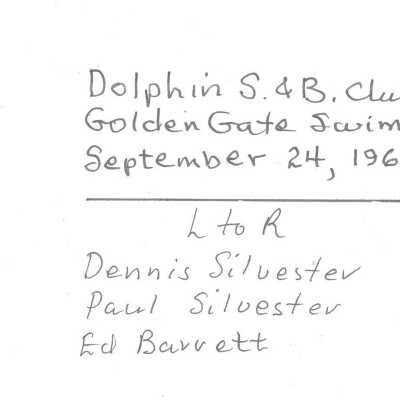 Dolphin S. & B. Clu
Golden Gate Swim
September 24, 196
L to R
Dennis Silvester
Paul Silvester
Ed Barrett